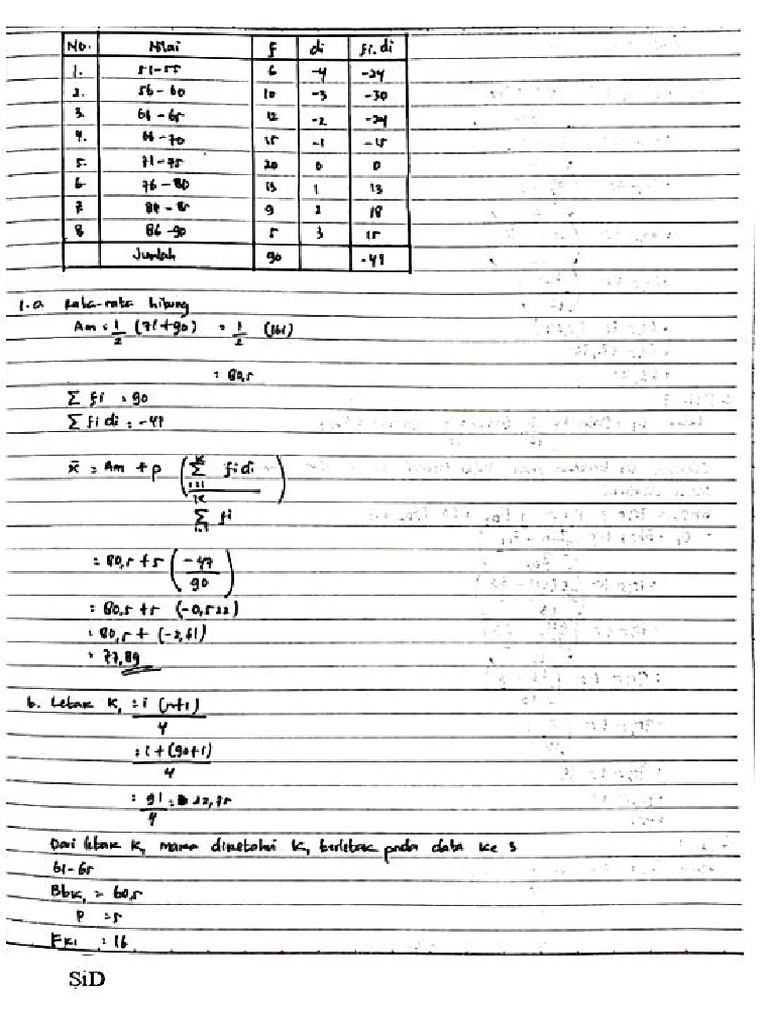 No. Nilai f di fi.di
1. 51-55 6 -4 -24
2. 56-60 10 -3 -30
3. 61-65 12 -2 -24
4. 66-70 15 -1 -15
5. 71-75 20 0 0
6 76-80 13 1 13
7 81-85 9 2 18
8 86-90 5 3 15
Jumlah 90 -47
1.a. Rata-rata hitung
Am = 1/2 (71+90) = 1/2 (161)
= 80,5
Σ fi = 90
Σ fi di = -47
x̄ = Am + p (Σ fi di / Σ fi)
= 80,5 + 5 (-47/90)
= 80,5 + 5 (-0,522)
= 80,5 + (-2,61)
= 77,89
b. Letak K₁ = i (n+1) / 4
= 1 + (90+1) / 4
= 91/4 = 22,75
Dari letak K₁ maka diketahui K₁ terletak pada data ke 3
61-65
Bbk₁ = 60,5
P = 5
Fk₁ = 16
SiD